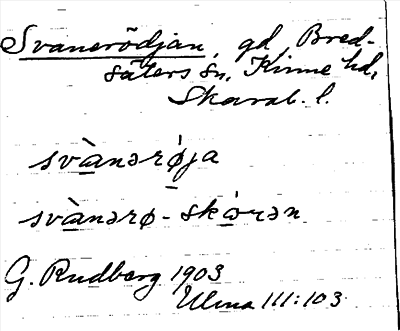 Svanerödjan, gd, Bred-
säters sn, Kinne hd,
Skarab. l.
svànərø̀ja
svànərø-skòrən
G. Rudberg 1903
Ulma 111:103